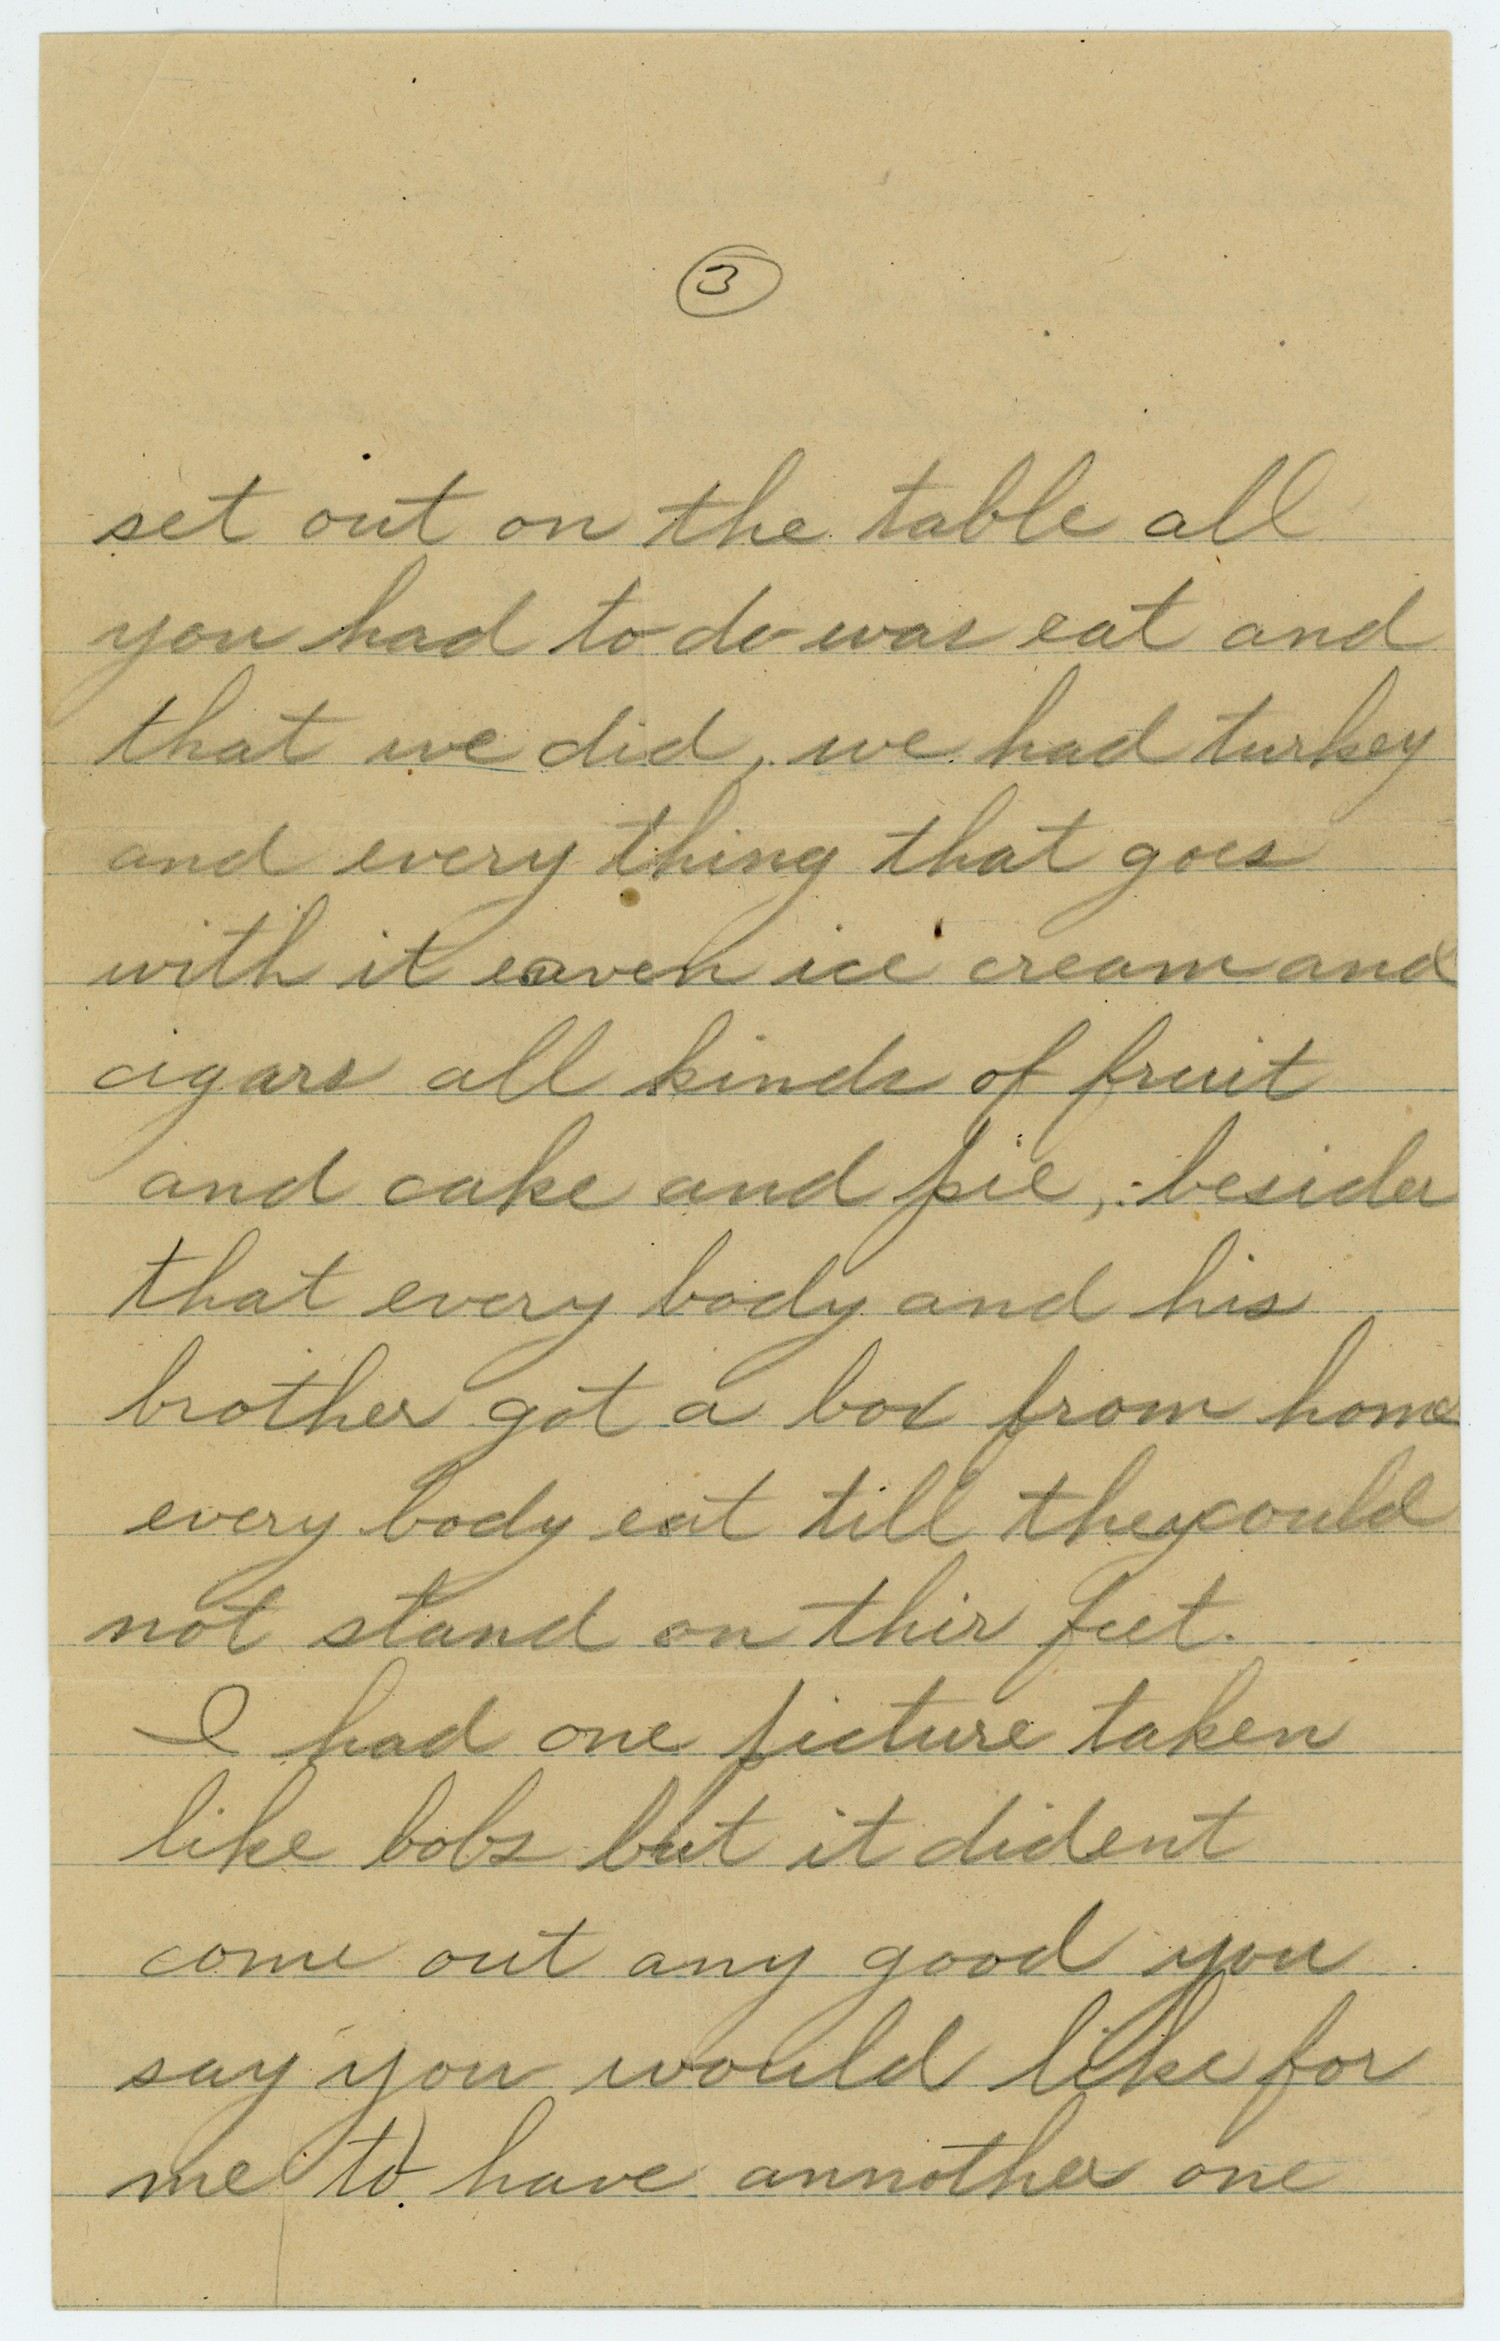 3
set out on the table all
you had to do was eat and
that we did, we had turkey
and every thing that goes
with it eaven ice cream and
cigars all kinds of fruit
and cake and pie, besides
that every body and his
brother got a box from home
every body eat till they could
not stand on thir feet.
I had one picture taken
like bobs but it dident
come out any good you
say you would like for
me to have annother one